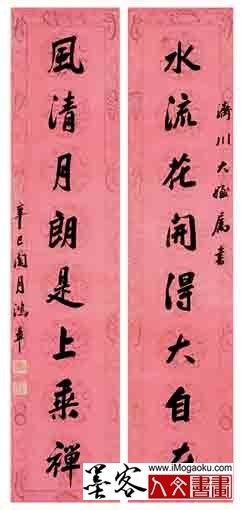 濟川大姪屬書
水流花開得大自在
風清月朗是上乘禪
辛巳閏月鴻章
www.iMogaoku.com
墨客人文書畫